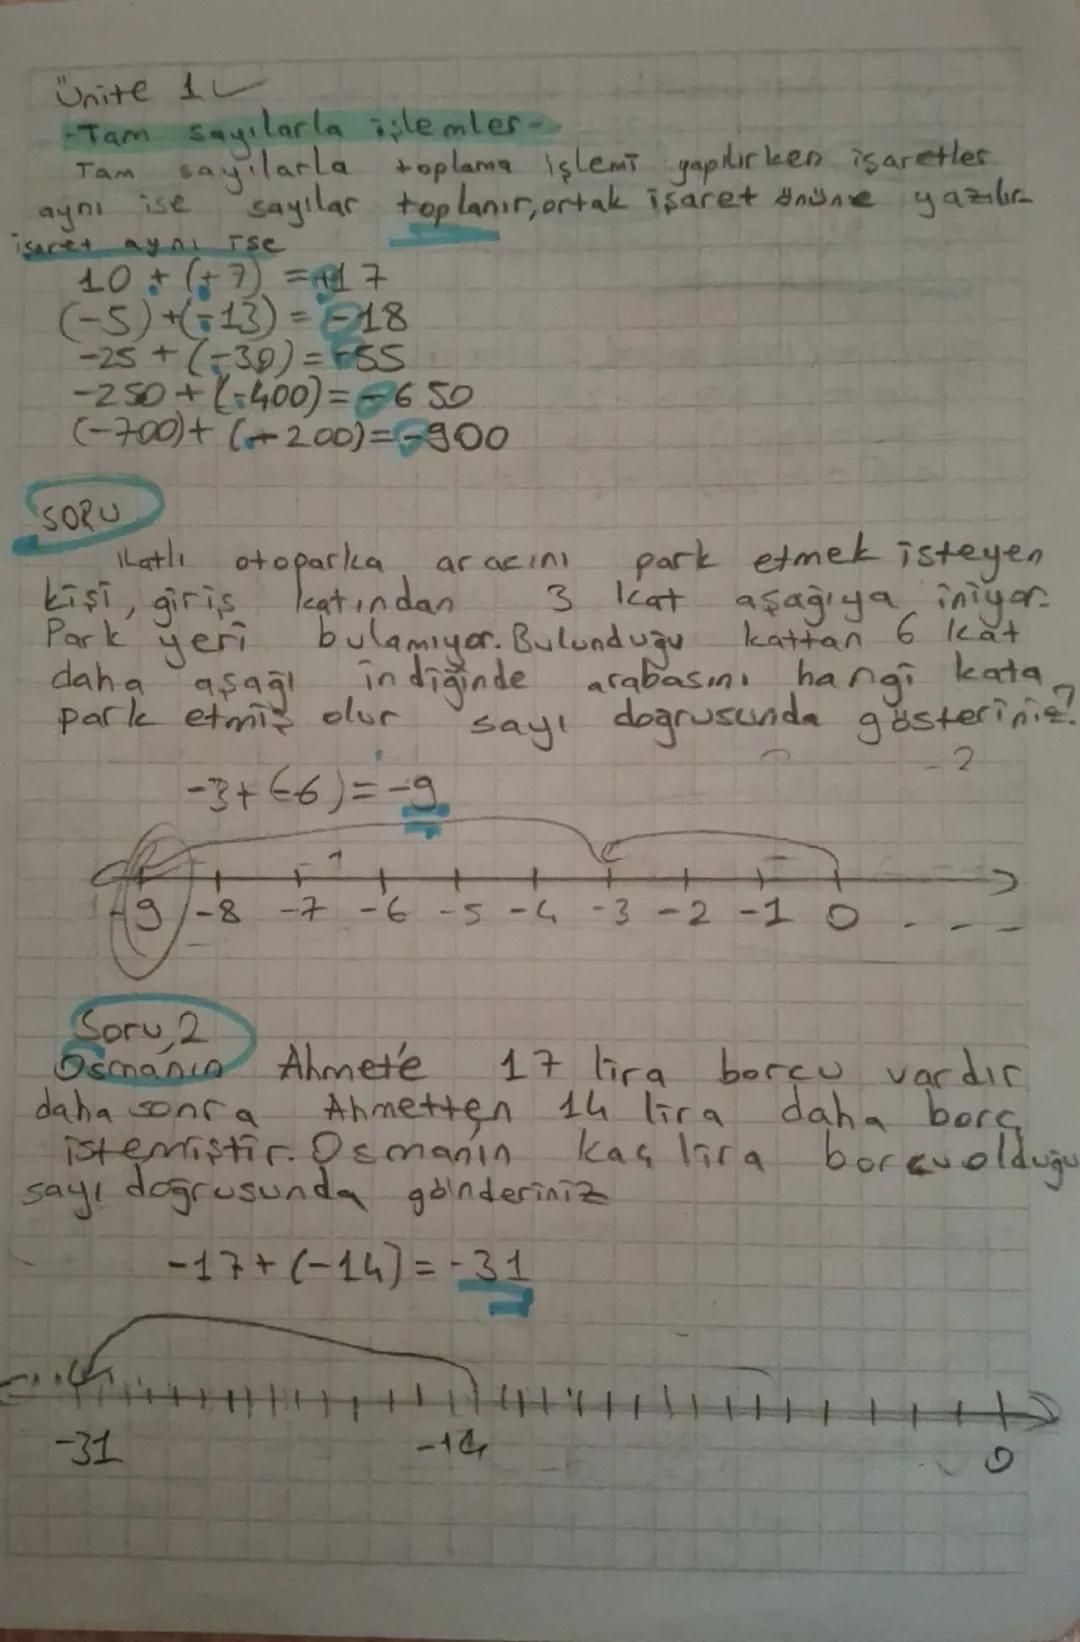 Ünite 1
-Tam sayılarla işlemler-
Tam sayılarla toplama işlemi yapılırken işaretler
aynı ise sayılar toplanır, ortak işaret önüne yazılır
işaret aynı ise
10 + (+7) = +17
(-5) + (-13) = -18
-25 + (-30) = -55
-250 + (-400) = -650
(-700) + (-200) = -900
SORU
Katlı otoparka aracını park etmek isteyen
kişi, giriş katından 3 kat aşağıya iniyor.
Park yeri bulamıyor. Bulunduğu kattan 6 kat
daha aşağı indiğinde arabasını hangi kata
park etmiş olur sayı doğrusunda gösteriniz?
-3 + (-6) = -9
-9 -8 -7 -6 -5 -4 -3 -2 -1 0 . - - -
Soru 2
Osman'ın Ahmet'e 17 lira borcu vardır
daha sonra Ahmetten 14 lira daha borç
istemiştir. Osmanın kaç lira borcu olduğu
sayı doğrusunda gönderiniz
-17 + (-14) = -31
-31 -14 0